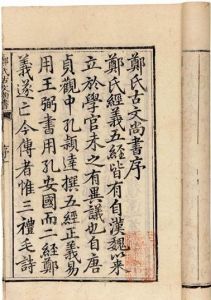 鄭氏古文尚書序
鄭氏經義五經皆有自漢魏以來
立於學官未之有異議也自唐
貞觀中孔穎達撰五經正義易
用王弼書用孔安國而二經鄭
義遂亡今傳者惟三禮毛詩
鄭氏古文尚書